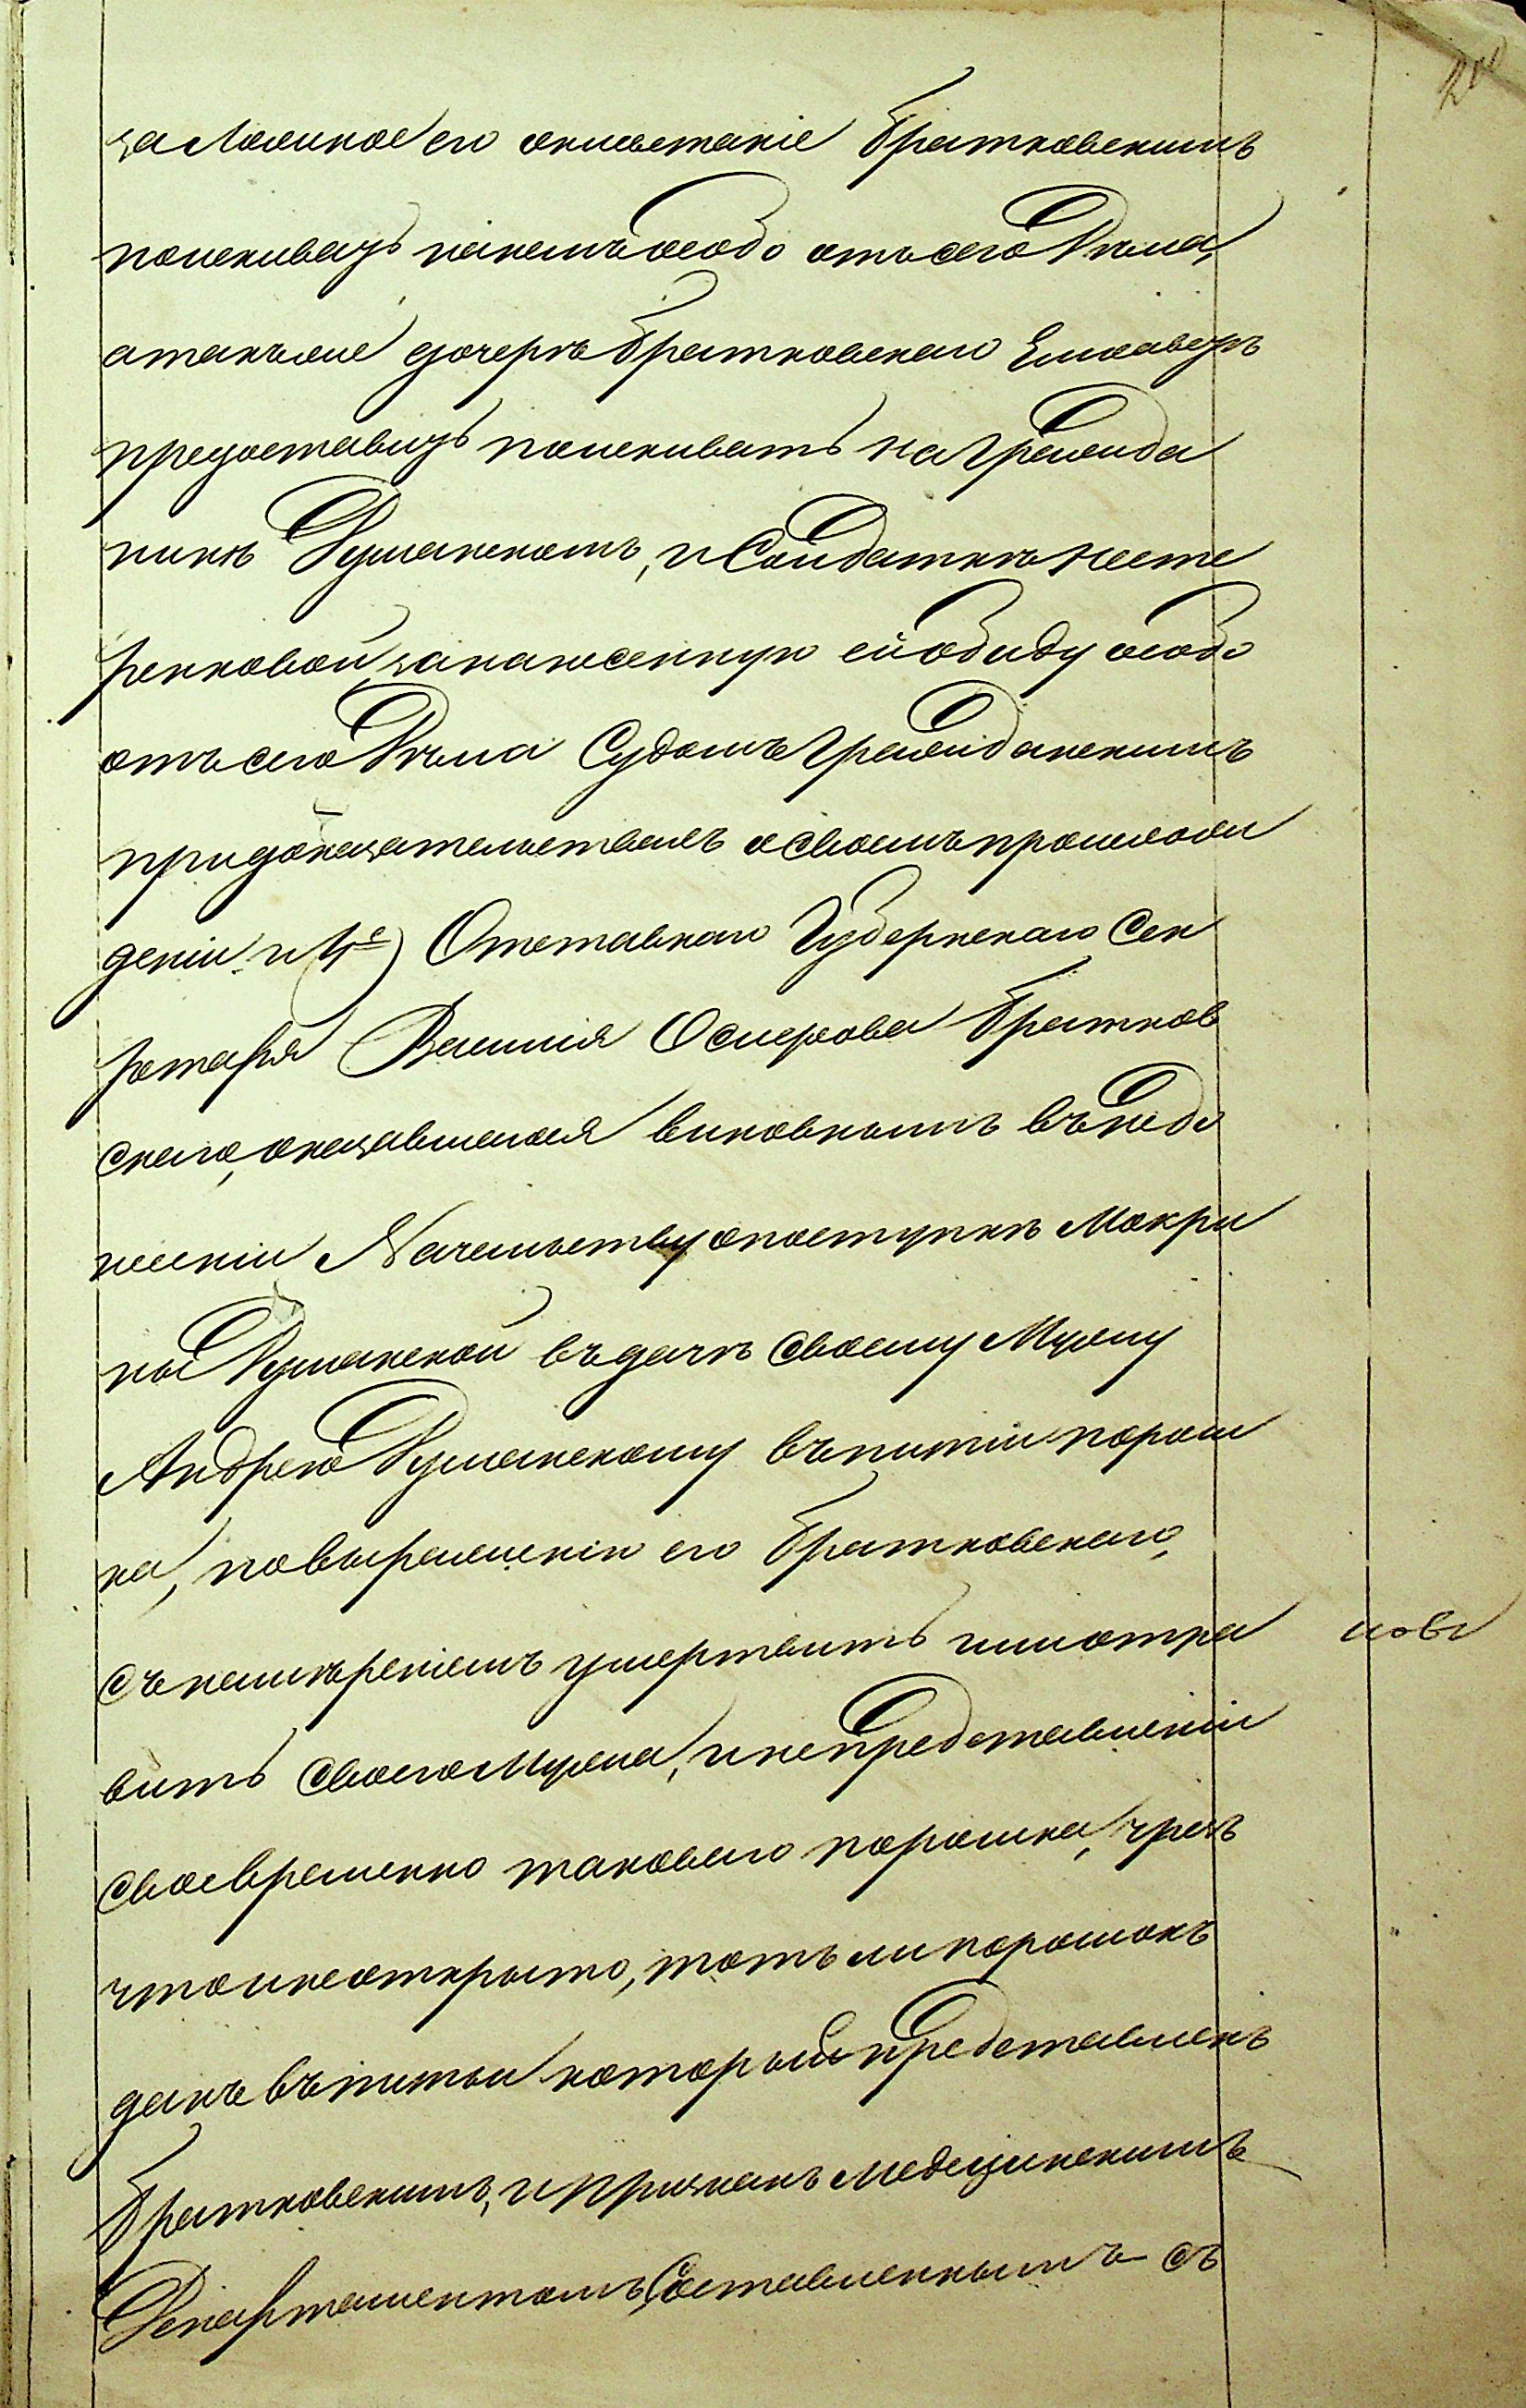 за ложное его оклеветаніе Братковскимъ
поискивать на немъ особо отъ сего Дѣла,
а также дочери Братковскаго Елисаветѣ
предоставить поискивать на Гражда
нинѣ Думанскомъ, и Солдаткѣ Несте
ренковой, за нанесенную ей обиду особо
отъ сего Дѣла Судомъ Гражданскимъ
при доказательствахъ о своемъ происхож
деніи. и 4е) Отставнаго Губернскаго Сек
ретаря Василія Осипова Братков
скаго, оказавшагося виновнымъ въ недо
несеніи Начальству о поступкѣ Макри
ны Думанской въ дачѣ своему Мужу
Андрею Думанскому въ питіи порош
ка, по выраженію его Братковскаго,
съ намѣреніемъ умертвить или отра
вить своего Мужа, и не представленіи
своевременно таковаго порошка, чрезъ
что и не открыто, тотъ ли порошокъ
данъ въ питьи который представленъ
Братковскимъ, и признанъ Медицинскимъ
Департаментомъ, Составленнымъ съ